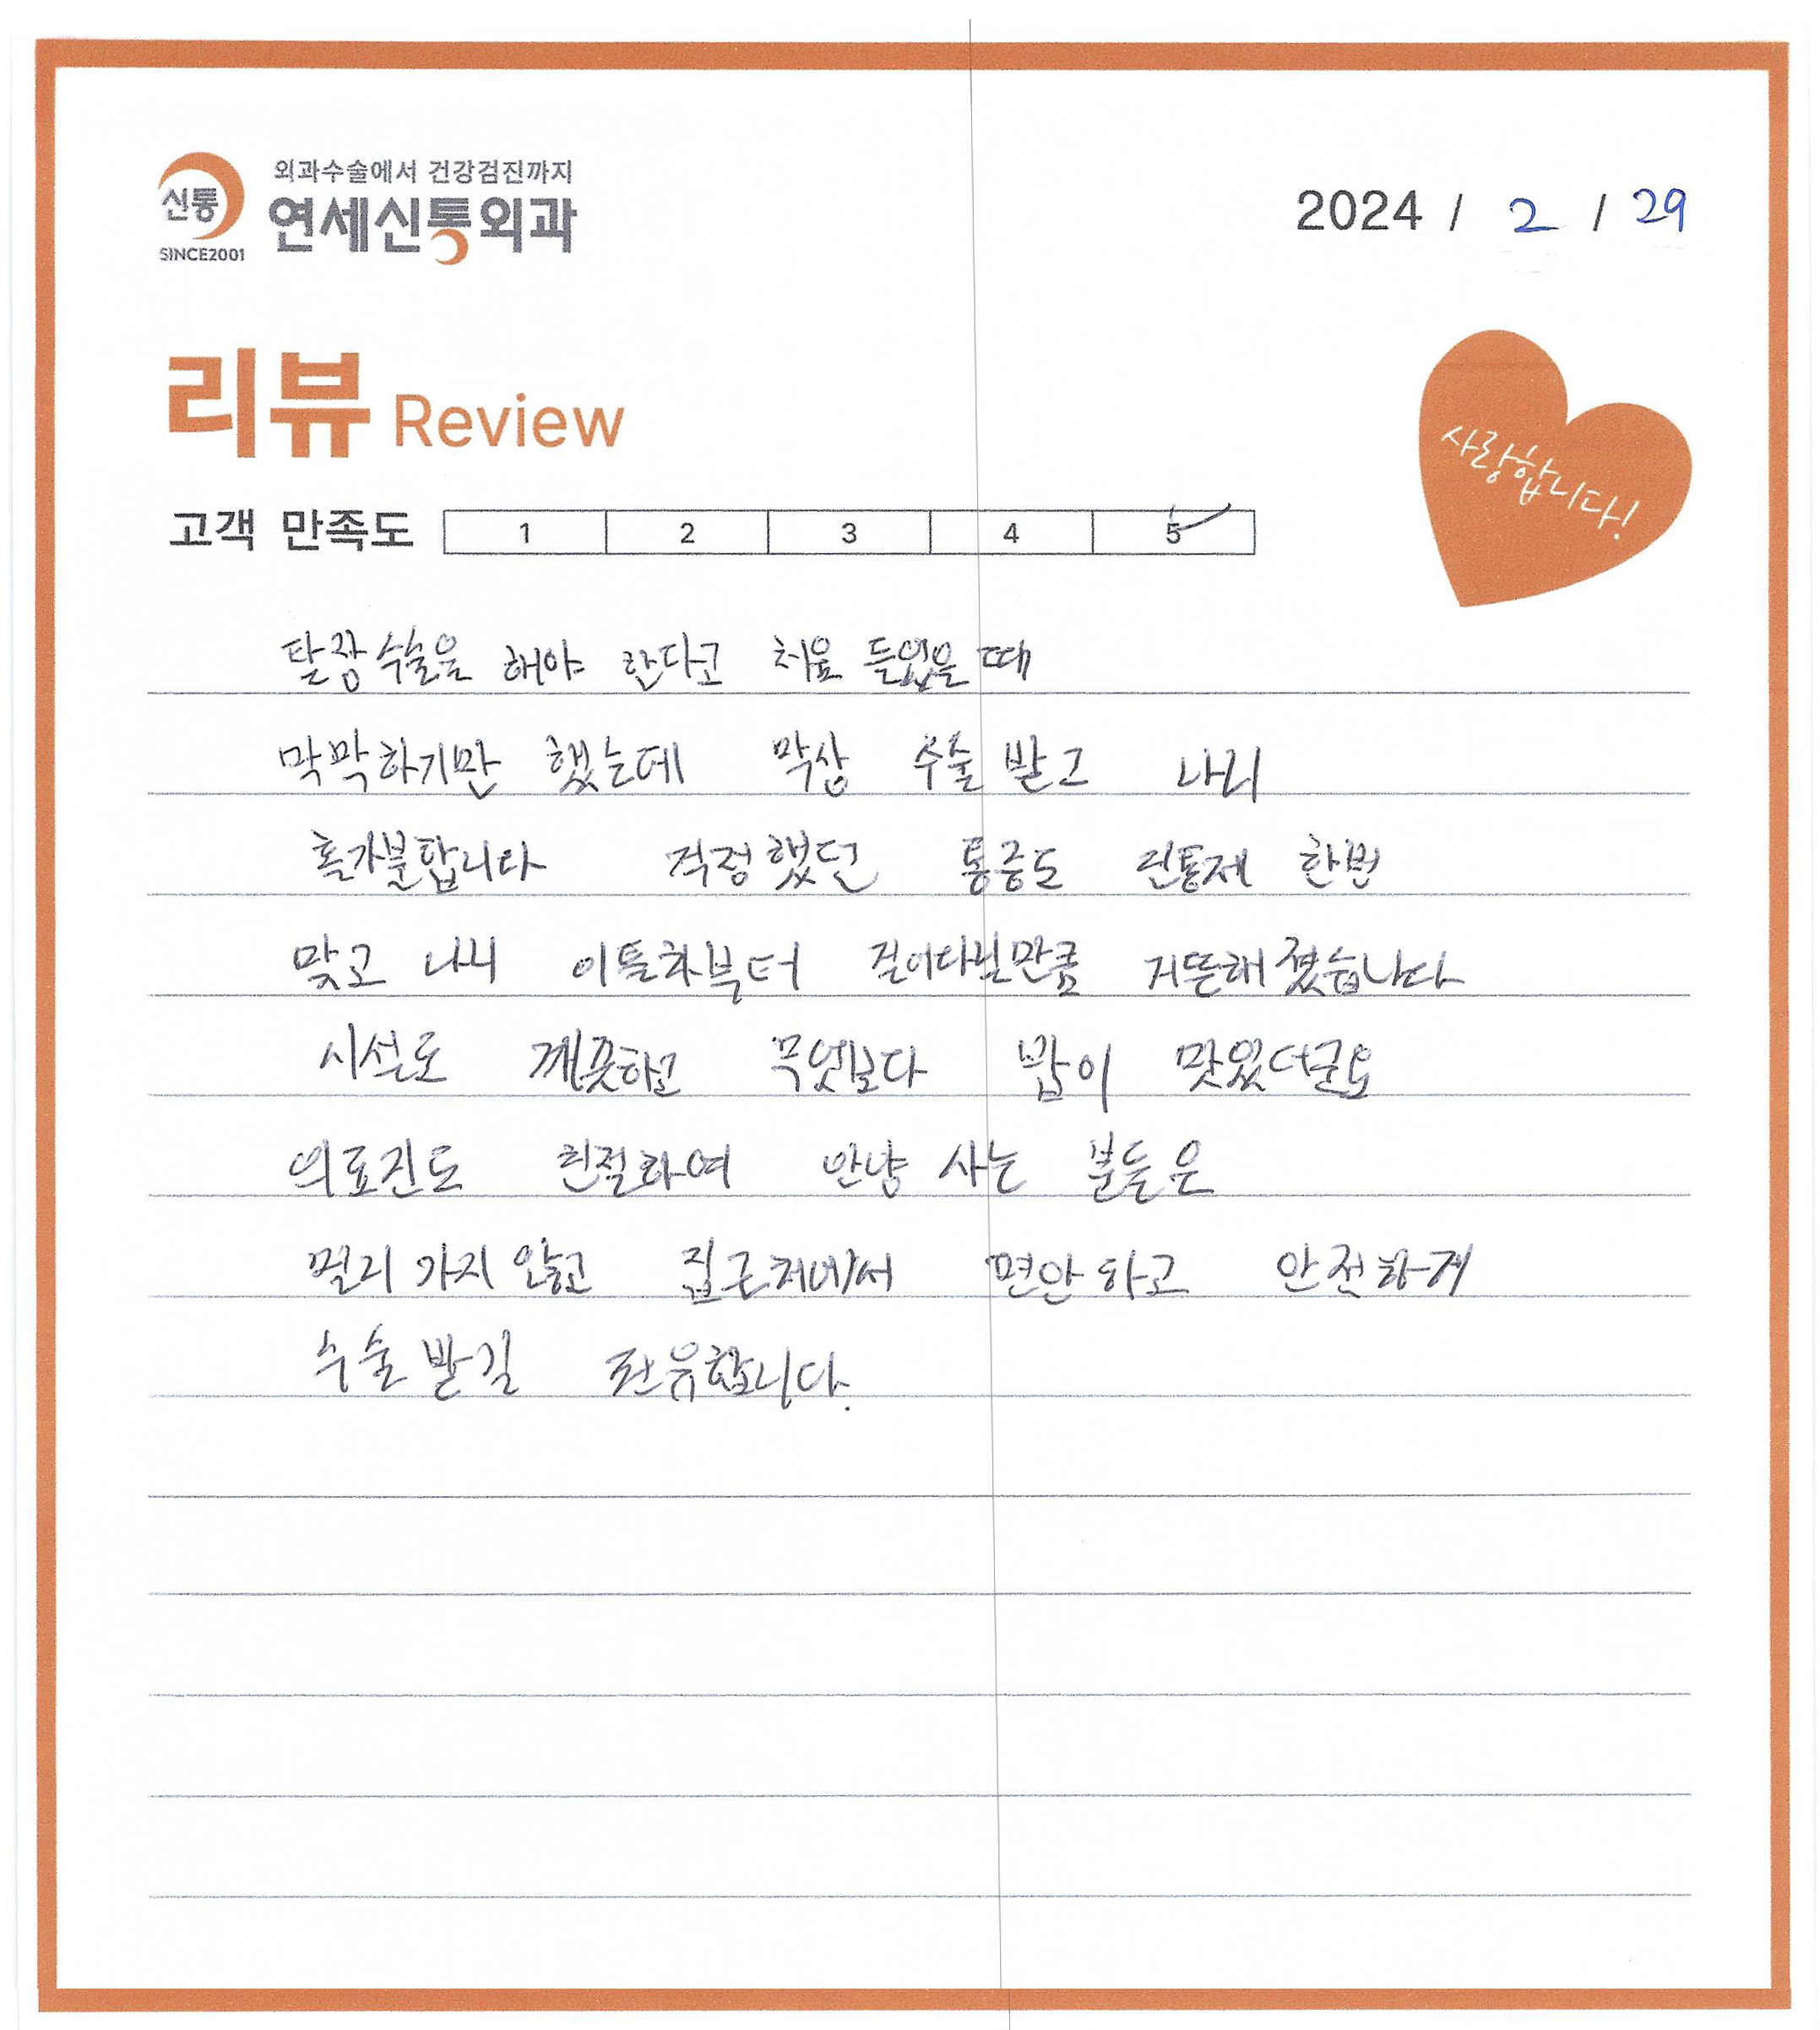 신통
SINCE2001
외과수술에서 건강검진까지
연세신통외과
2024 / 2 / 29
리뷰 Review
사랑합니다!
고객 만족도 1 2 3 4 5
탈장수술을 해야 한다고 처음 들었을 때
막막하기만 했는데 막상 수술 받고 나니
홀가분합니다 걱정했던 통증도 진통제 한번
맞고 나니 이틀차부터 걸어다닐만큼 거뜬해졌습니다
시설도 깨끗하고 무엇보다 밥이 맛있더군요
의료진도 친절하여 안양 사는 분들은
멀리 가지 않고 집근처에서 편안하고 안전하게
수술 받길 권유합니다.